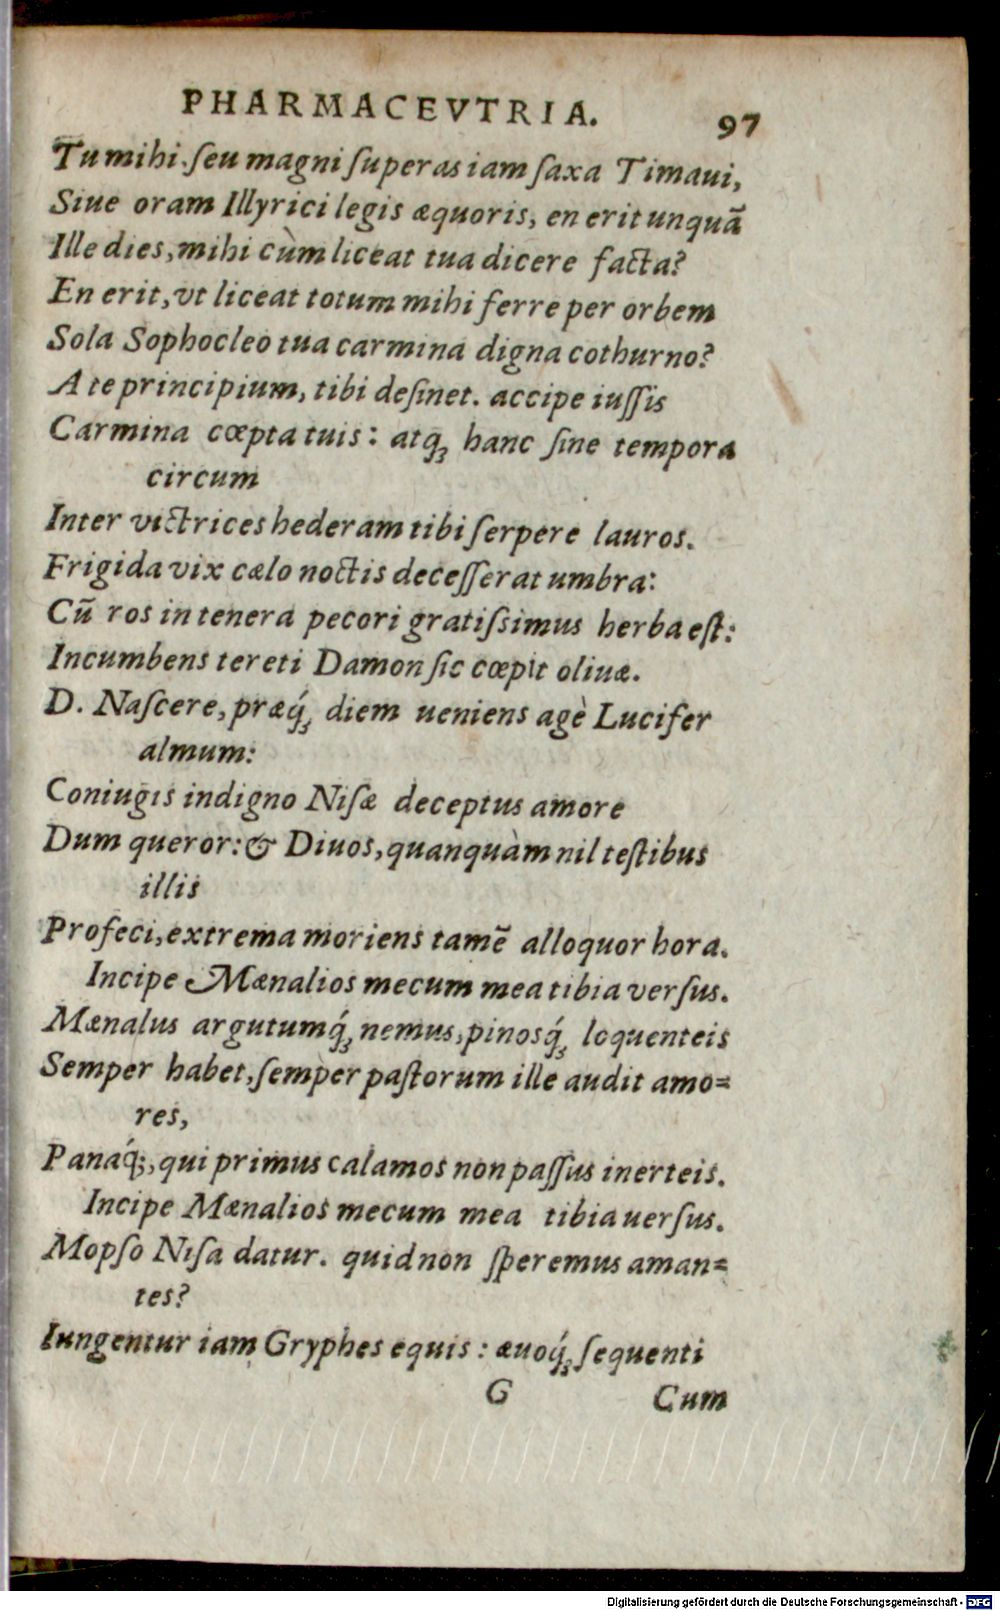 PHARMACEVTRIA. 97
Tu mihi. ſeu magni ſuperas iam ſaxa Timaui,
Siue oram Illyrici legis æquoris, en erit unquã
Ille dies, mihi cùm liceat tua dicere facta?
En erit, vt liceat totum mihi ferre per orbem
Sola Sophocleo tua carmina digna cothurno?
A te principium, tibi deſinet. accipe iuſſis
Carmina cœpta tuis: atq; hanc ſine tempora
circum
Inter victrices hederam tibi ſerpere lauros.
Frigida vix cælo noctis deceſſerat umbra:
Cũ ros in tenera pecori gratiſsimus herba eſt:
Incumbens tereti Damon ſic cœpit oliuæ.
D. Naſcere, præq́; diem ueniens agè Lucifer
almum:
Coniugis indigno Niſæ deceptus amore
Dum queror: & Diuos, quanquàm nil teſtibus
illis
Profeci, extrema moriens tamẽ alloquor hora.
Incipe Mænalios mecum mea tibia verſus.
Mænalus argutumq́; nemus, pinosq́; loquenteis
Semper habet, ſempèr paſtorum ille audit amo=
res,
Panaq́;, qui primus calamos non paſſus inerteis.
Incipe Mænalios mecum mea tibia uerſus.
Mopſo Niſa datur. quid non ſperemus aman=
tes?
Iungentur iam Gryphes equis: æuoq́; ſequenti
G Cum
Digitalisierung gefördert durch die Deutsche Forschungsgemeinschaft - DFG